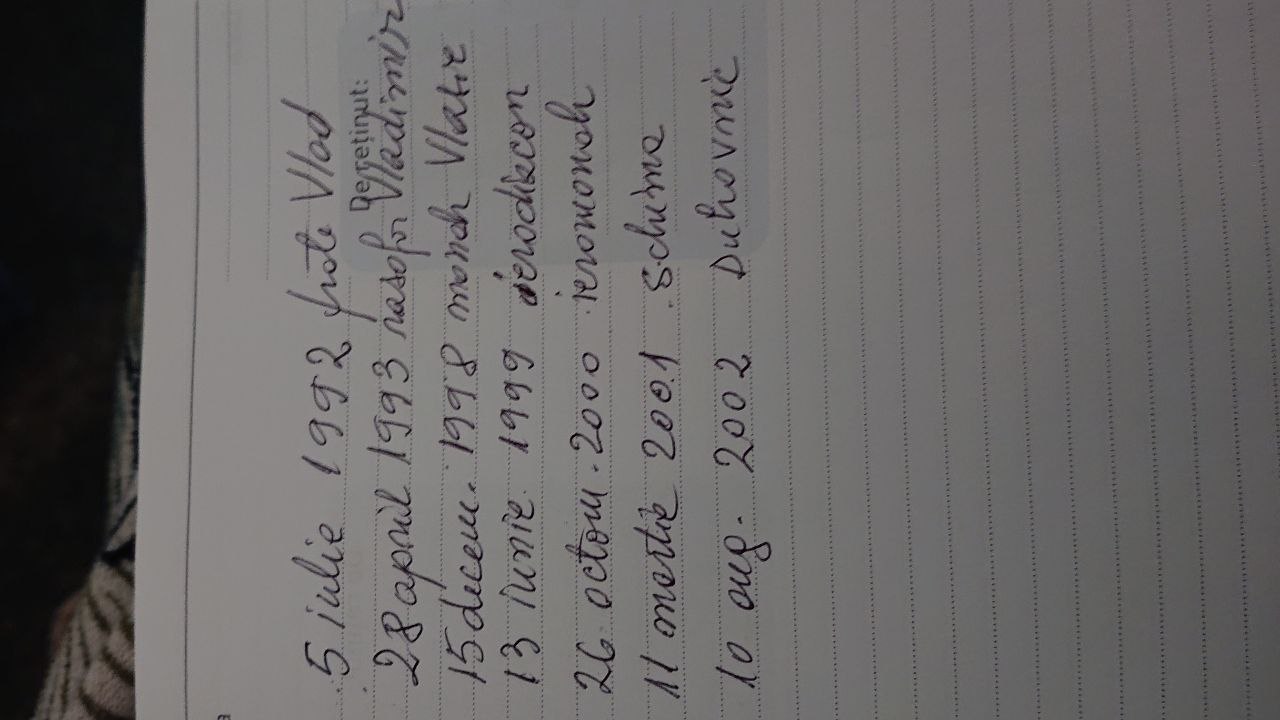 De reținut:
5 iulie 1992 frate Vlad
28 april 1993 rasofor Vladimir
15 decem. 1998 monah Vlasie
13 iunie 1999 ierodiacon
26 octom. 2000 ieromonah
11 martie 2001 schima
10 aug. 2002 Duhovnic